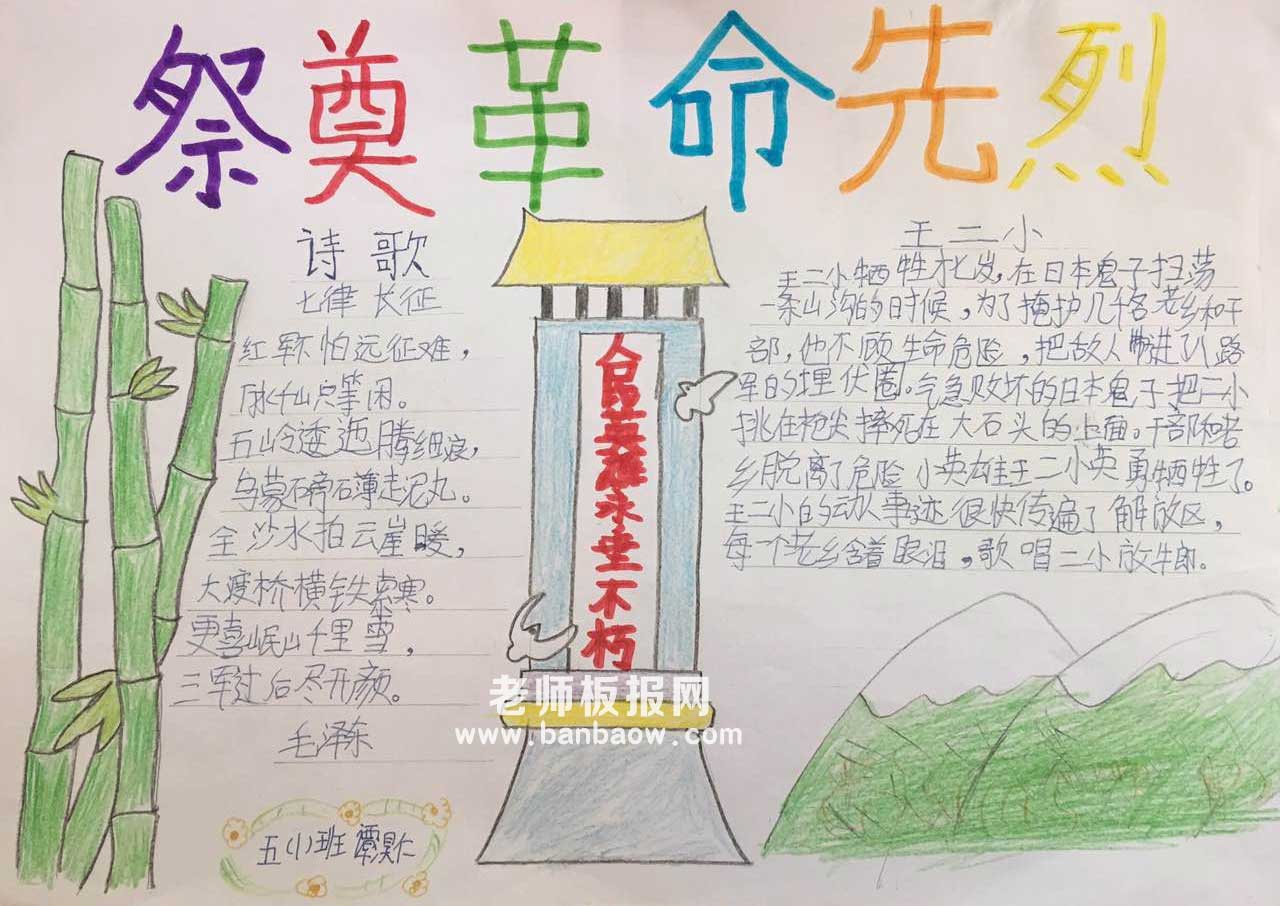 祭奠革命先烈
诗歌
七律 长征
红军不怕远征难，
万水千山只等闲。
五岭逶迤腾细浪，
乌蒙磅礴走泥丸。
金沙水拍云崖暖，
大渡桥横铁索寒。
更喜岷山千里雪，
三军过后尽开颜。
毛泽东
五(1)班
人民英雄永垂不朽
王二小
王二小牺牲才七岁，在日本鬼子扫荡
一条山沟的时候，为了掩护几千名老乡和干
部，他不顾生命危险，把敌人带进了八路
军的埋伏圈。气急败坏的日本鬼子把二小
挑在枪尖摔死在大石头的上面。干部和老
乡脱离了危险 小英雄王二小英勇牺牲了。
王二小的动人事迹很快传遍了解放区，
每一个老乡含着眼泪，歌唱二小放牛郎。
老师板报网
www.banbaow.com